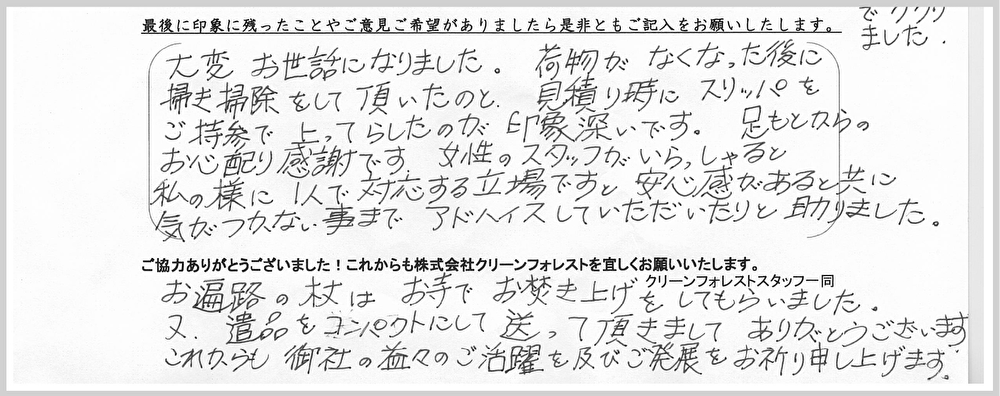 最後に印象に残ったことやご意見ご希望がありましたら是非ともご記入をお願いしたします。
ました.
大変 お世話になりました。 荷物が なくなった後に
掃き掃除をして頂いたのと、見積り時に スリッパを
ご持参で 上ってらしたのが 印象深いです。 足もとからの
お心配り感謝です. 女性のスタッフがいらっしゃると
私の様に 1人で対応する立場ですと 安心感があると共に
気がつかない事まで アドバイスしていただいたりと 助りました。
ご協力ありがとうございました！これからも株式会社クリーンフォレストを宜しくお願いいたします。
クリーンフォレストスタッフ一同
お遍路の杖は お寺で お焚き上げをしてもらいました.
又、遺品をコンパクトにして送って頂きまして ありがとうございます
これからも 御社の益々のご活躍を及びご発展をお祈り申し上げます.